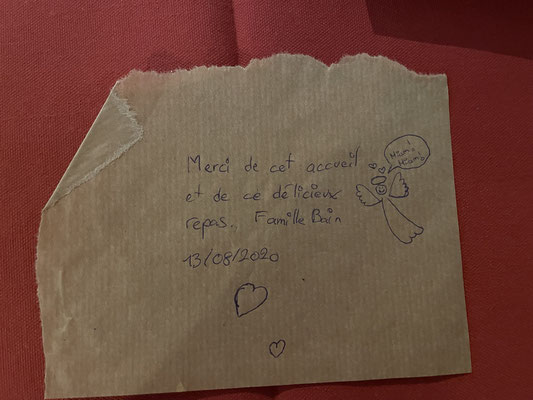 Merci de cet accueil
et de ce délicieux
repas. Famille Bain
13/08/2020
Miam!
Miam!